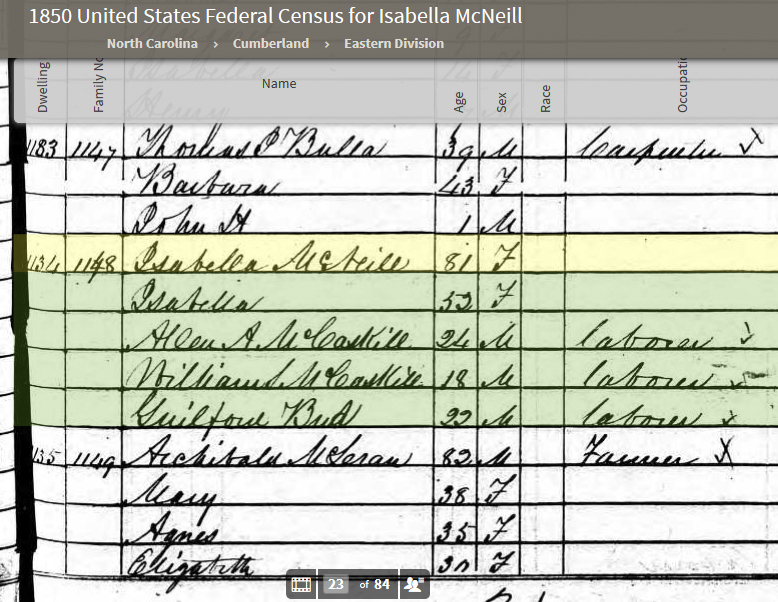 1850 United States Federal Census for Isabella McNeill
North Carolina > Cumberland > Eastern Division
Dwelling Family No Name Age Sex Race Occupatio
Isabella
Henry
1183 1147 Thomas P Bulla 39 M Carpenter
Barbara 43 F
John H 1 M
1134 1148 Isabella McNeill 81 F
Isabella 52 F
Allen A McCaskill 24 M laborer
William McCaskill 18 M laborer
Guilford Bud 22 M laborer
1135 1149 Archibald McLeran 82 M Farmer X
Mary 38 F
Agnes 35 F
Elizabeth 30 F
23 of 84